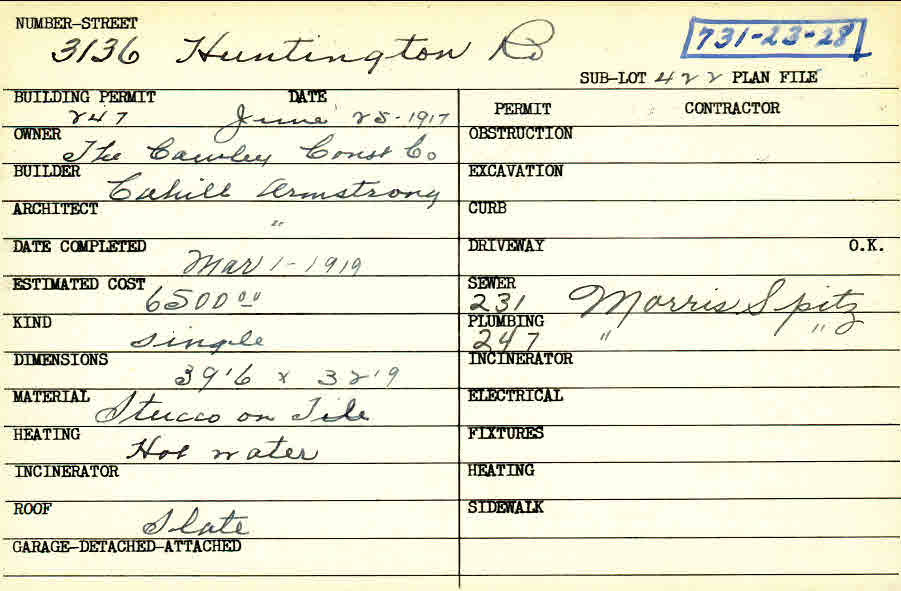 NUMBER-STREET
3136 Huntington Rd
731-23-28
SUB-LOT 422 PLAN FILE
BUILDING PERMIT DATE
247 June 25-1917
OWNER
The Cawley Const Co
BUILDER
Cahill Armstrong
ARCHITECT
"
DATE COMPLETED
Mar 1-1919
ESTIMATED COST
6500 00
KIND
Single
DIMENSIONS
39'6 x 32'9
MATERIAL
Stucco on Tile
HEATING
Hot water
INCINERATOR
ROOF
Slate
GARAGE-DETACHED-ATTACHED
PERMIT CONTRACTOR
OBSTRUCTION
EXCAVATION
CURB
DRIVEWAY O.K.
SEWER
231 Morris Spitz
PLUMBING
247 " "
INCINERATOR
ELECTRICAL
FIXTURES
HEATING
SIDEWALK